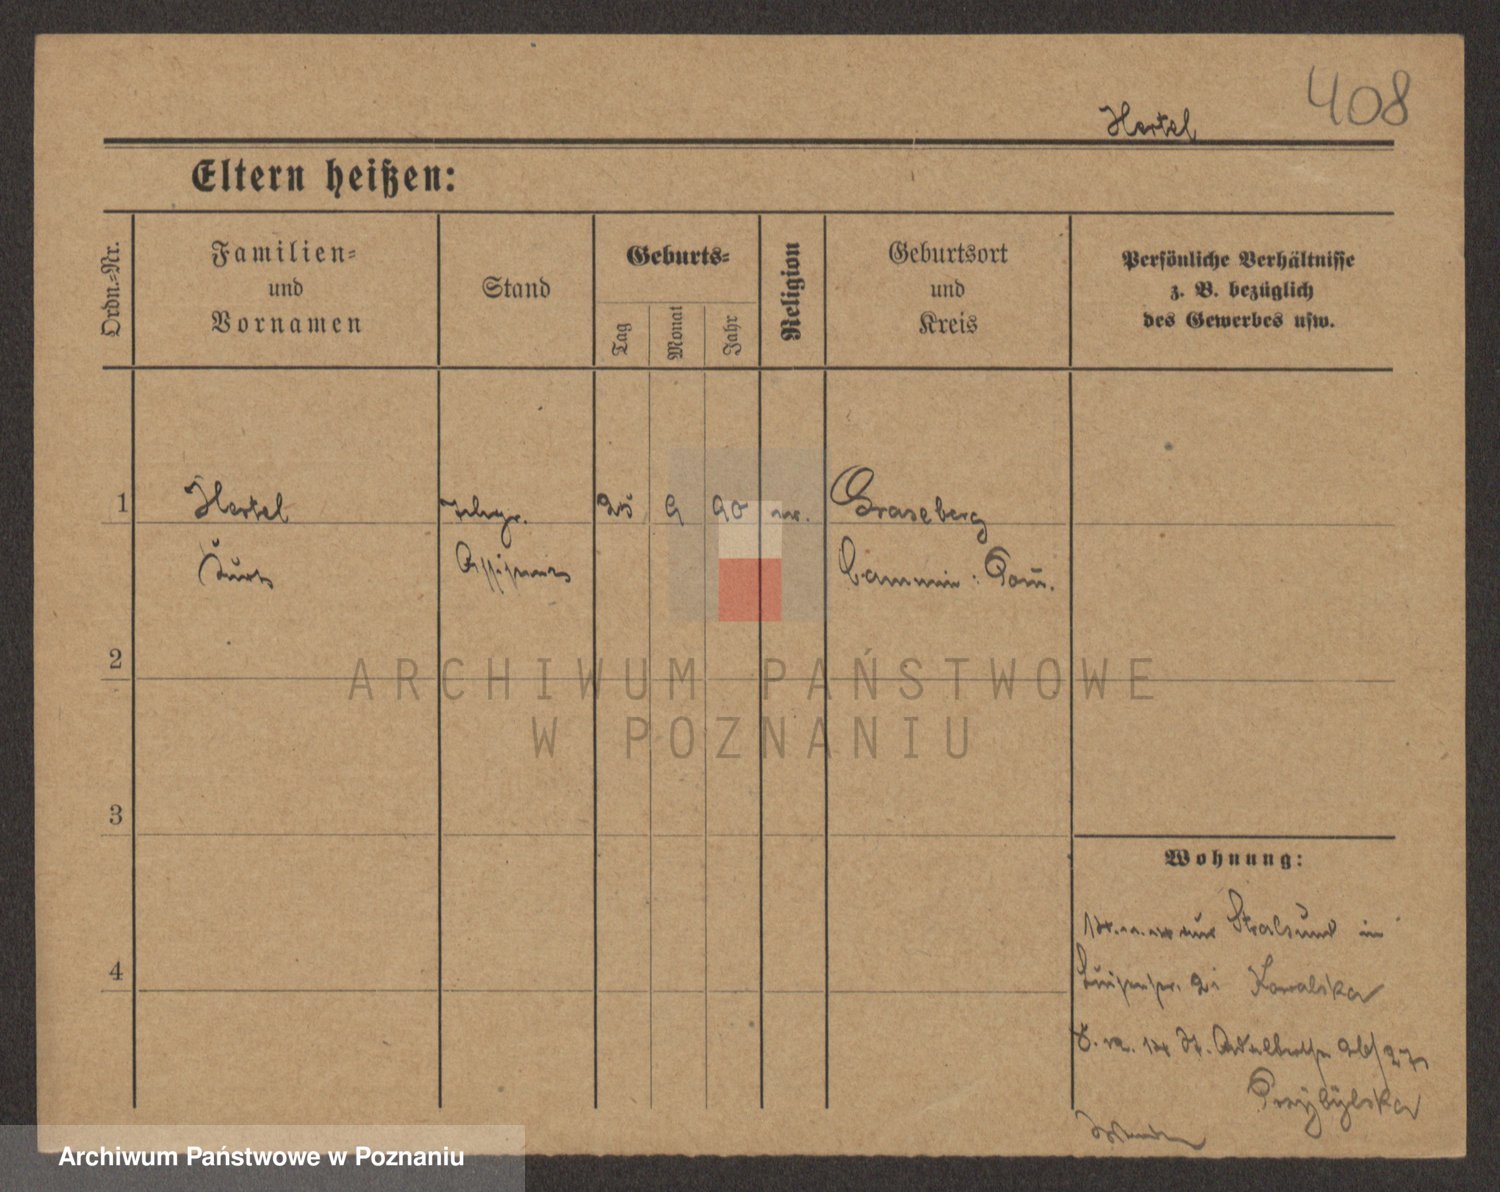 408
Hertel
Eltern heißen:
Ordn.-Nr.
Familien-
und
Vornamen
Stand
Geburts-
Tag
Monat
Jahr
Religion
Geburtsort
und
Kreis
Persönliche Verhältnisse
z. B. bezüglich
des Gewerbes usw.
1
Hertel
Telegr.
25
9
90
ev.
Graseberg
Kurt
Assistent
Cammin. Pom.
2
3
4
Wohnung:
Stralsund in
Kowalska
St. Adalbertstr. 26/27
Przybylska
ARCHIWUM PAŃSTWOWE
W POZNANIU
Archiwum Państwowe w Poznaniu